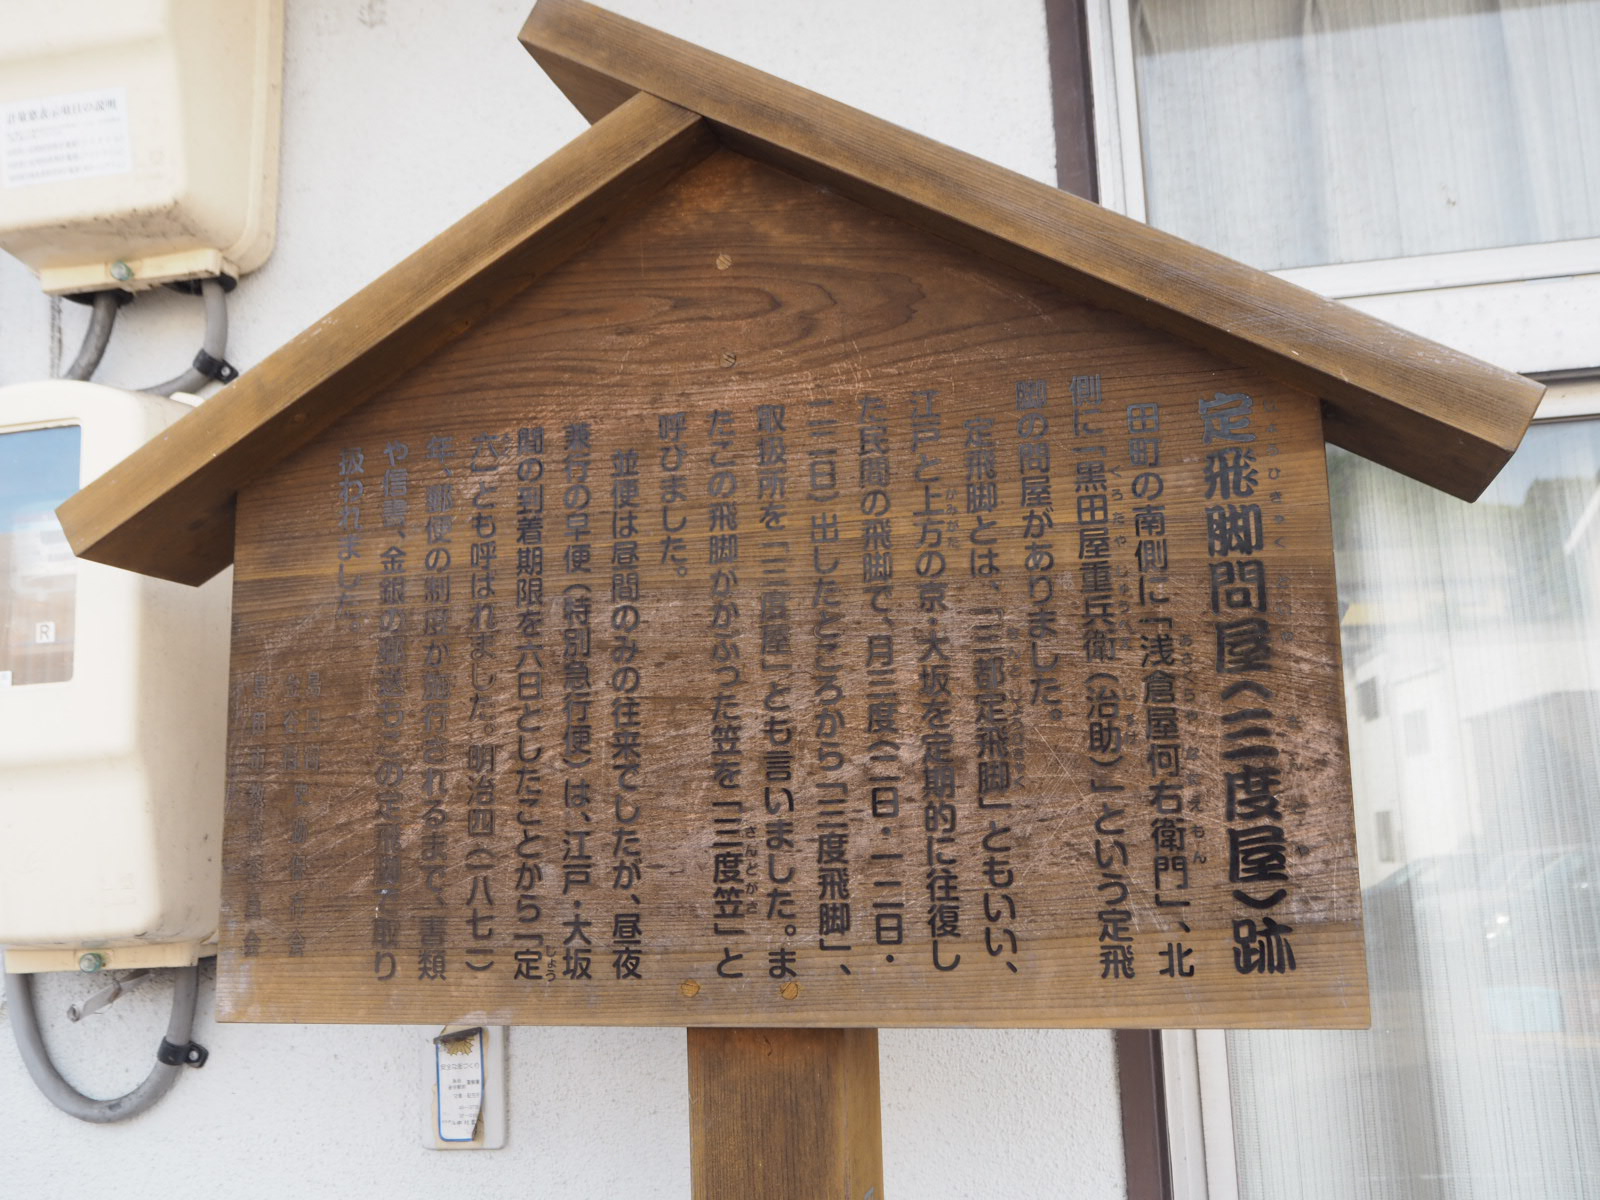 定飛脚問屋(三度屋)跡
田町の南側に「浅倉屋何右衛門」、北
側に「黒田屋重兵衛(治助)」という定飛
脚の問屋がありました。
定飛脚とは、「三都定飛脚」ともいい、
江戸と上方の京・大坂を定期的に往復し
た民間の飛脚で、月三度(二日・一二日・
二二日)出したところから「三度飛脚」、
取扱所を「三度屋」とも言いました。ま
たこの飛脚がかぶった笠を「三度笠」と
呼びました。
並便は昼間のみの往来でしたが、昼夜
兼行の早便(特別急行便)は、江戸・大坂
間の到着期限を六日としたことから「定
六」とも呼ばれました。明治四(一八七一)
年、郵便の制度が施行されるまで、書類
や信書、金銀の郵送もこの定飛脚で取り
扱われました。